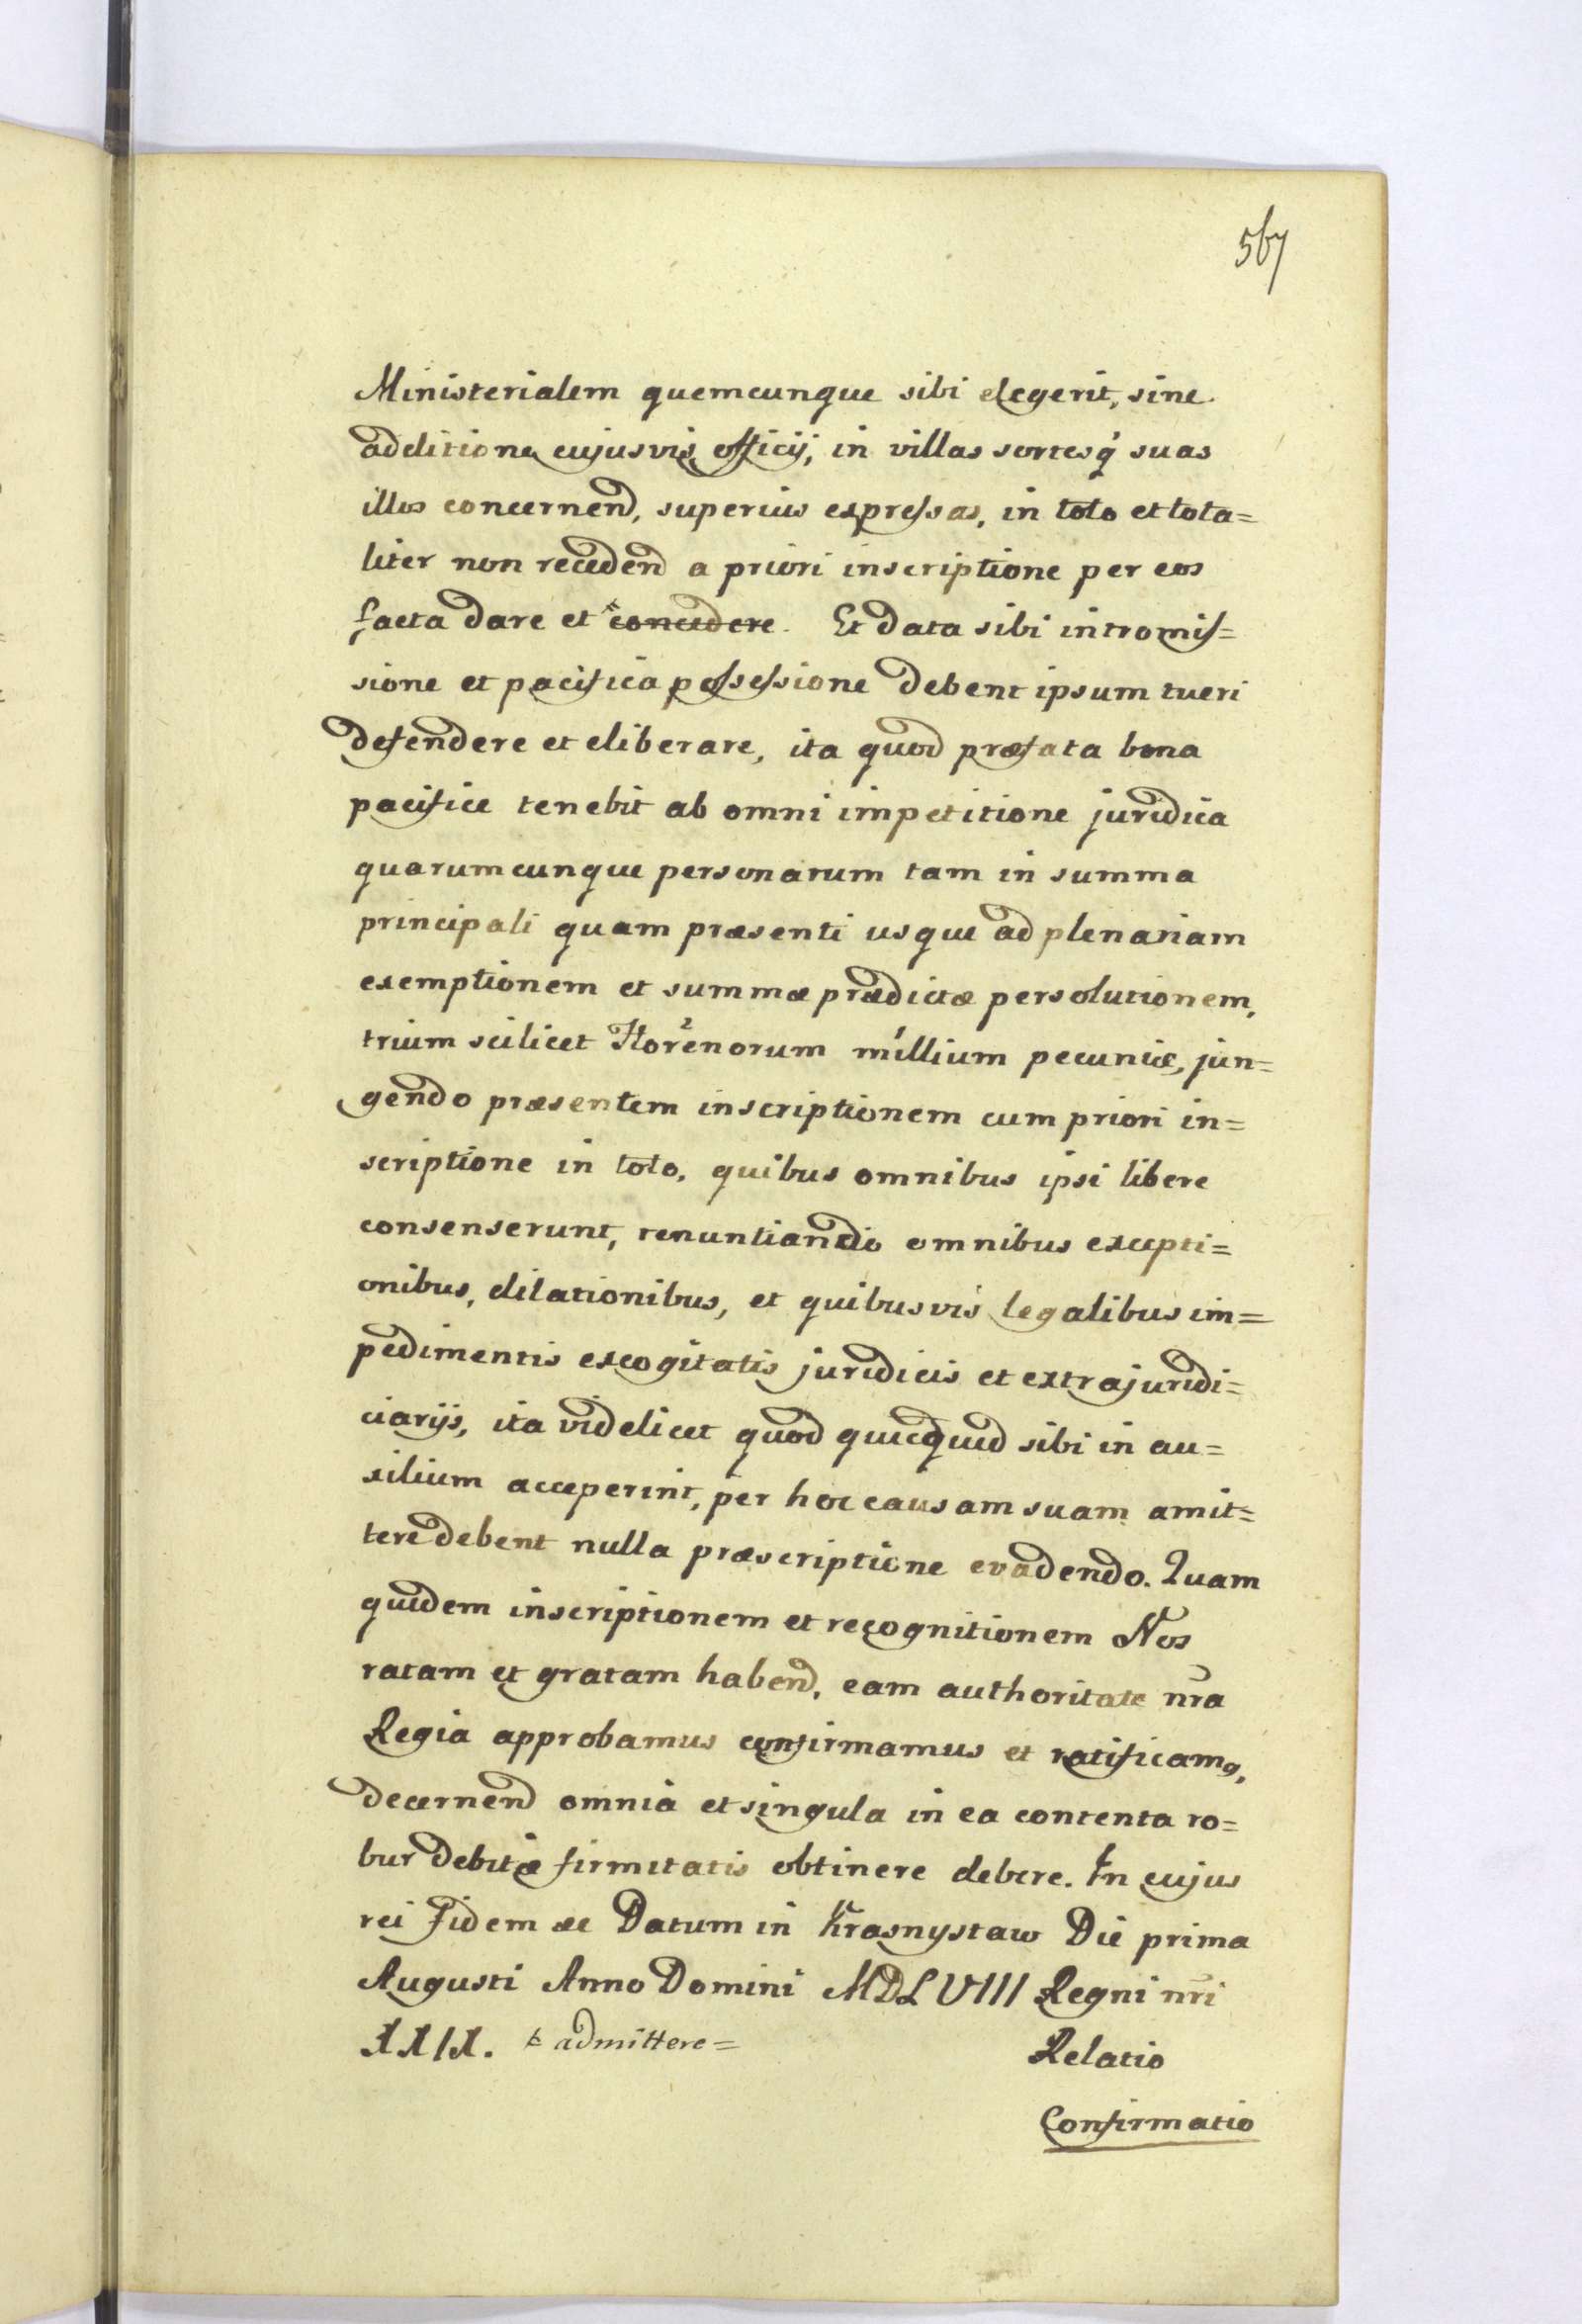 567
Ministerialem quemcunque sibi elegerit, sine
additione cujusvis officij, in villas sortesq́ suas
illos concernend, superius expressas, in toto et tota=
liter non recedend a priori inscriptione per eos
facta dare et ˣconcedere. Et data sibi intromis=
sione et pacifica possessione debent ipsum tueri
defendere et eliberare, ita quod præfata bona
pacifice tenebit ab omni impetitione juridica
quarumcunque personarum tam in summa
principali quam præsenti usque ad plenariam
exemptionem et summæ prædictæ persolutionem,
trium scilicet Florenorum millium pecuniæ, jun=
gendo præsentem inscriptionem cum priori in=
scriptione in toto, quibus omnibus ipsi libere
consenserunt, renuntiando omnibus excepti=
onibus, dilationibus, et quibusvis legalibus im=
pedimentis excogitatis juridicis et extrajuridi=
ciarijs, ita videlicet quod quicquid sibi in au=
xilium acceperint, per hoc causam suam amit=
tere debent nulla præscriptione evadendo. Quam
quidem inscriptionem et recognitionem Nos
ratam et gratam habend, eam authoritate nra
Regia approbamus confirmamus et ratificamꝰ,
decernend omnia et singula in ea contenta ro=
bur debitæ firmitatis obtinere debere. In cujus
rei fidem ac Datum in Krasnystaw Die prima
Augusti Anno Domini MDLVIII Regni nri
XXIX. ˣ admittere=
Relatio
Confirmatio